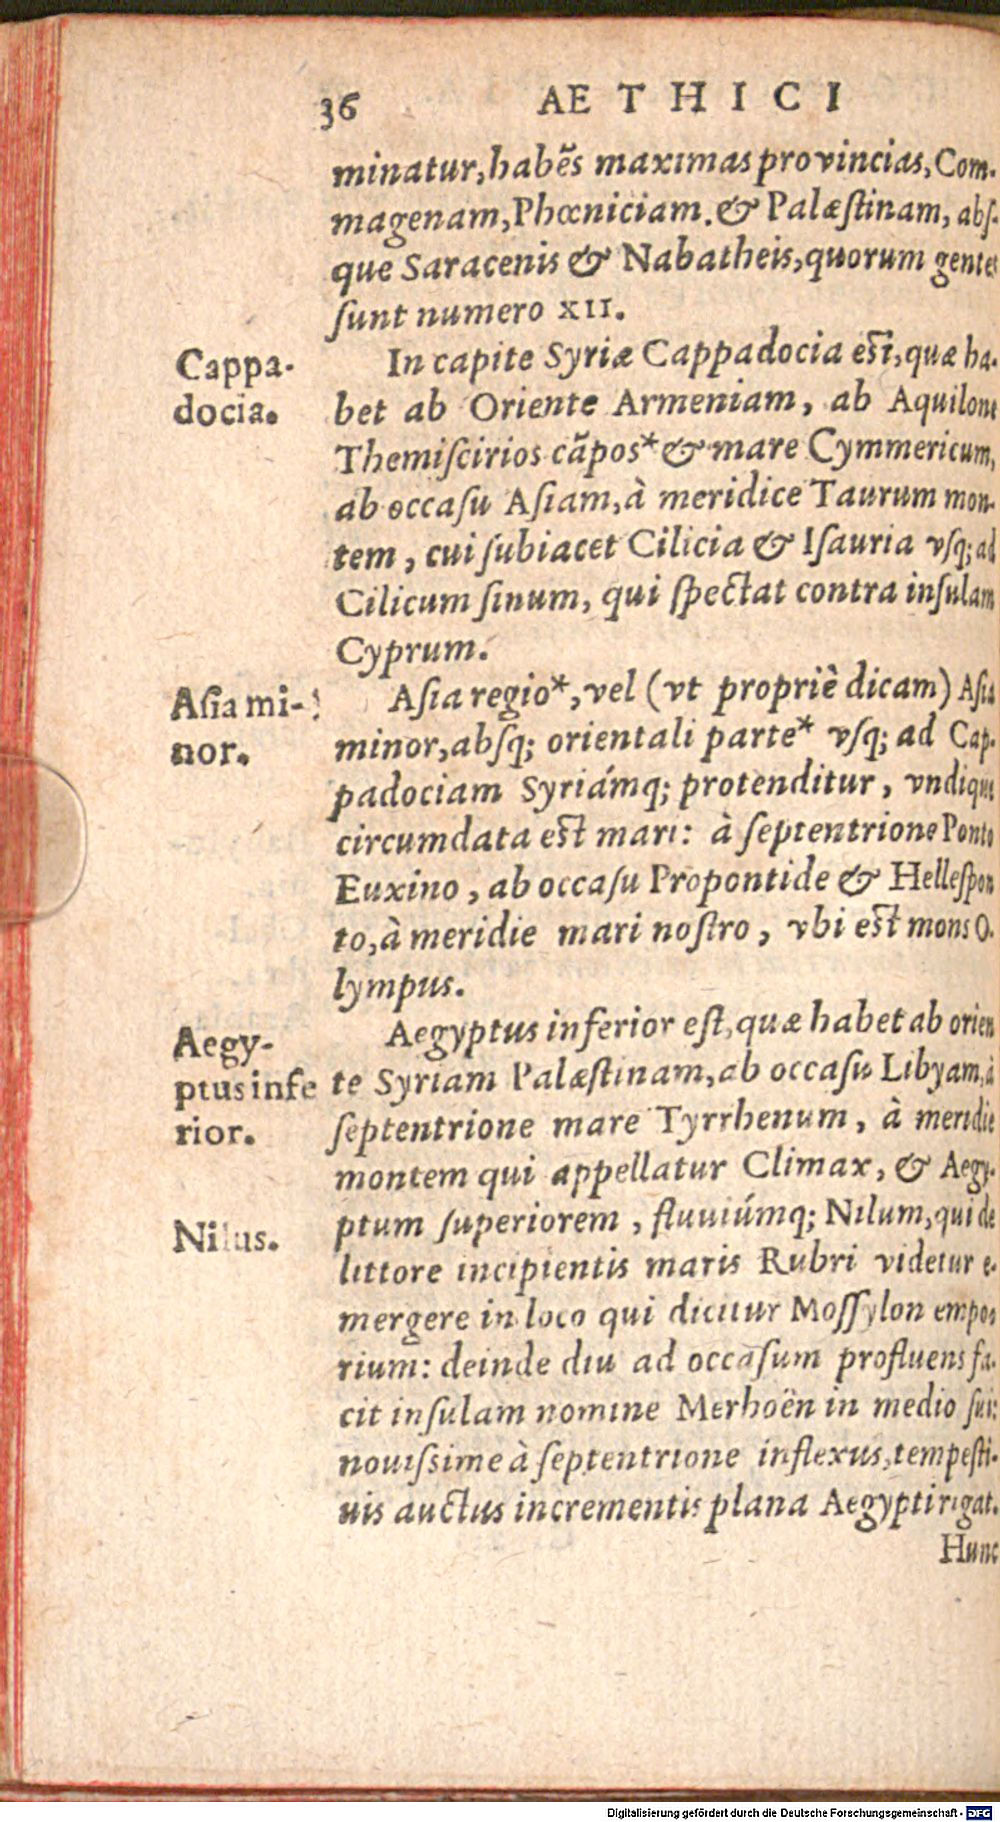 36 AETHICI
minatur, habēs maximas provincias, Com-
magenam, Phœniciam. & Palæſtinam, abſ-
que Saracenis & Nabatheis, quorum gentes
ſunt numero XII.
Cappa-
docia.
In capite Syriæ Cappadocia eſt, quæ ha-
bet ab Oriente Armeniam, ab Aquilone
Themiſcirios cāpos* & mare Cymmericum,
ab occaſu Aſiam, à meridice Taurum mon-
tem, cui ſubiacet Cilicia & Iſauria vſq; ad
Cilicum ſinum, qui ſpectat contra inſulam
Cyprum.
Aſia mi-
nor.
Aſia regio*, vel (vt propriè dicam) Aſia
minor, abſq; orientali parte* vſq; ad Cap-
padociam Syriámq; protenditur, vndique
circumdata eſt mari: à ſeptentrione Ponto
Euxino, ab occaſu Propontide & Helleſpon
to, à meridie mari noſtro, vbi eſt mons O-
lympus.
Aegy-
ptus infe
rior.
Aegyptus inferior eſt, quæ habet ab orien
te Syriam Palæſtinam, ab occaſu Libyam, à
ſeptentrione mare Tyrrhenum, à meridie
montem qui appellatur Climax, & Aegy-
Nilus.
ptum ſuperiorem, fluuiúmq; Nilum, qui de
littore incipientis maris Rubri videtur e-
mergere in loco qui dicitur Moſſylon empo
rium: deinde diu ad occaſum profluens fa-
cit inſulam nomine Merhoën in medio ſui:
nouiſsime à ſeptentrione inflexus, tempeſti-
uis auctus incrementis plana Aegypti rigat.
Hunc
Digitalisierung gefördert durch die Deutsche Forschungsgemeinschaft - DFG